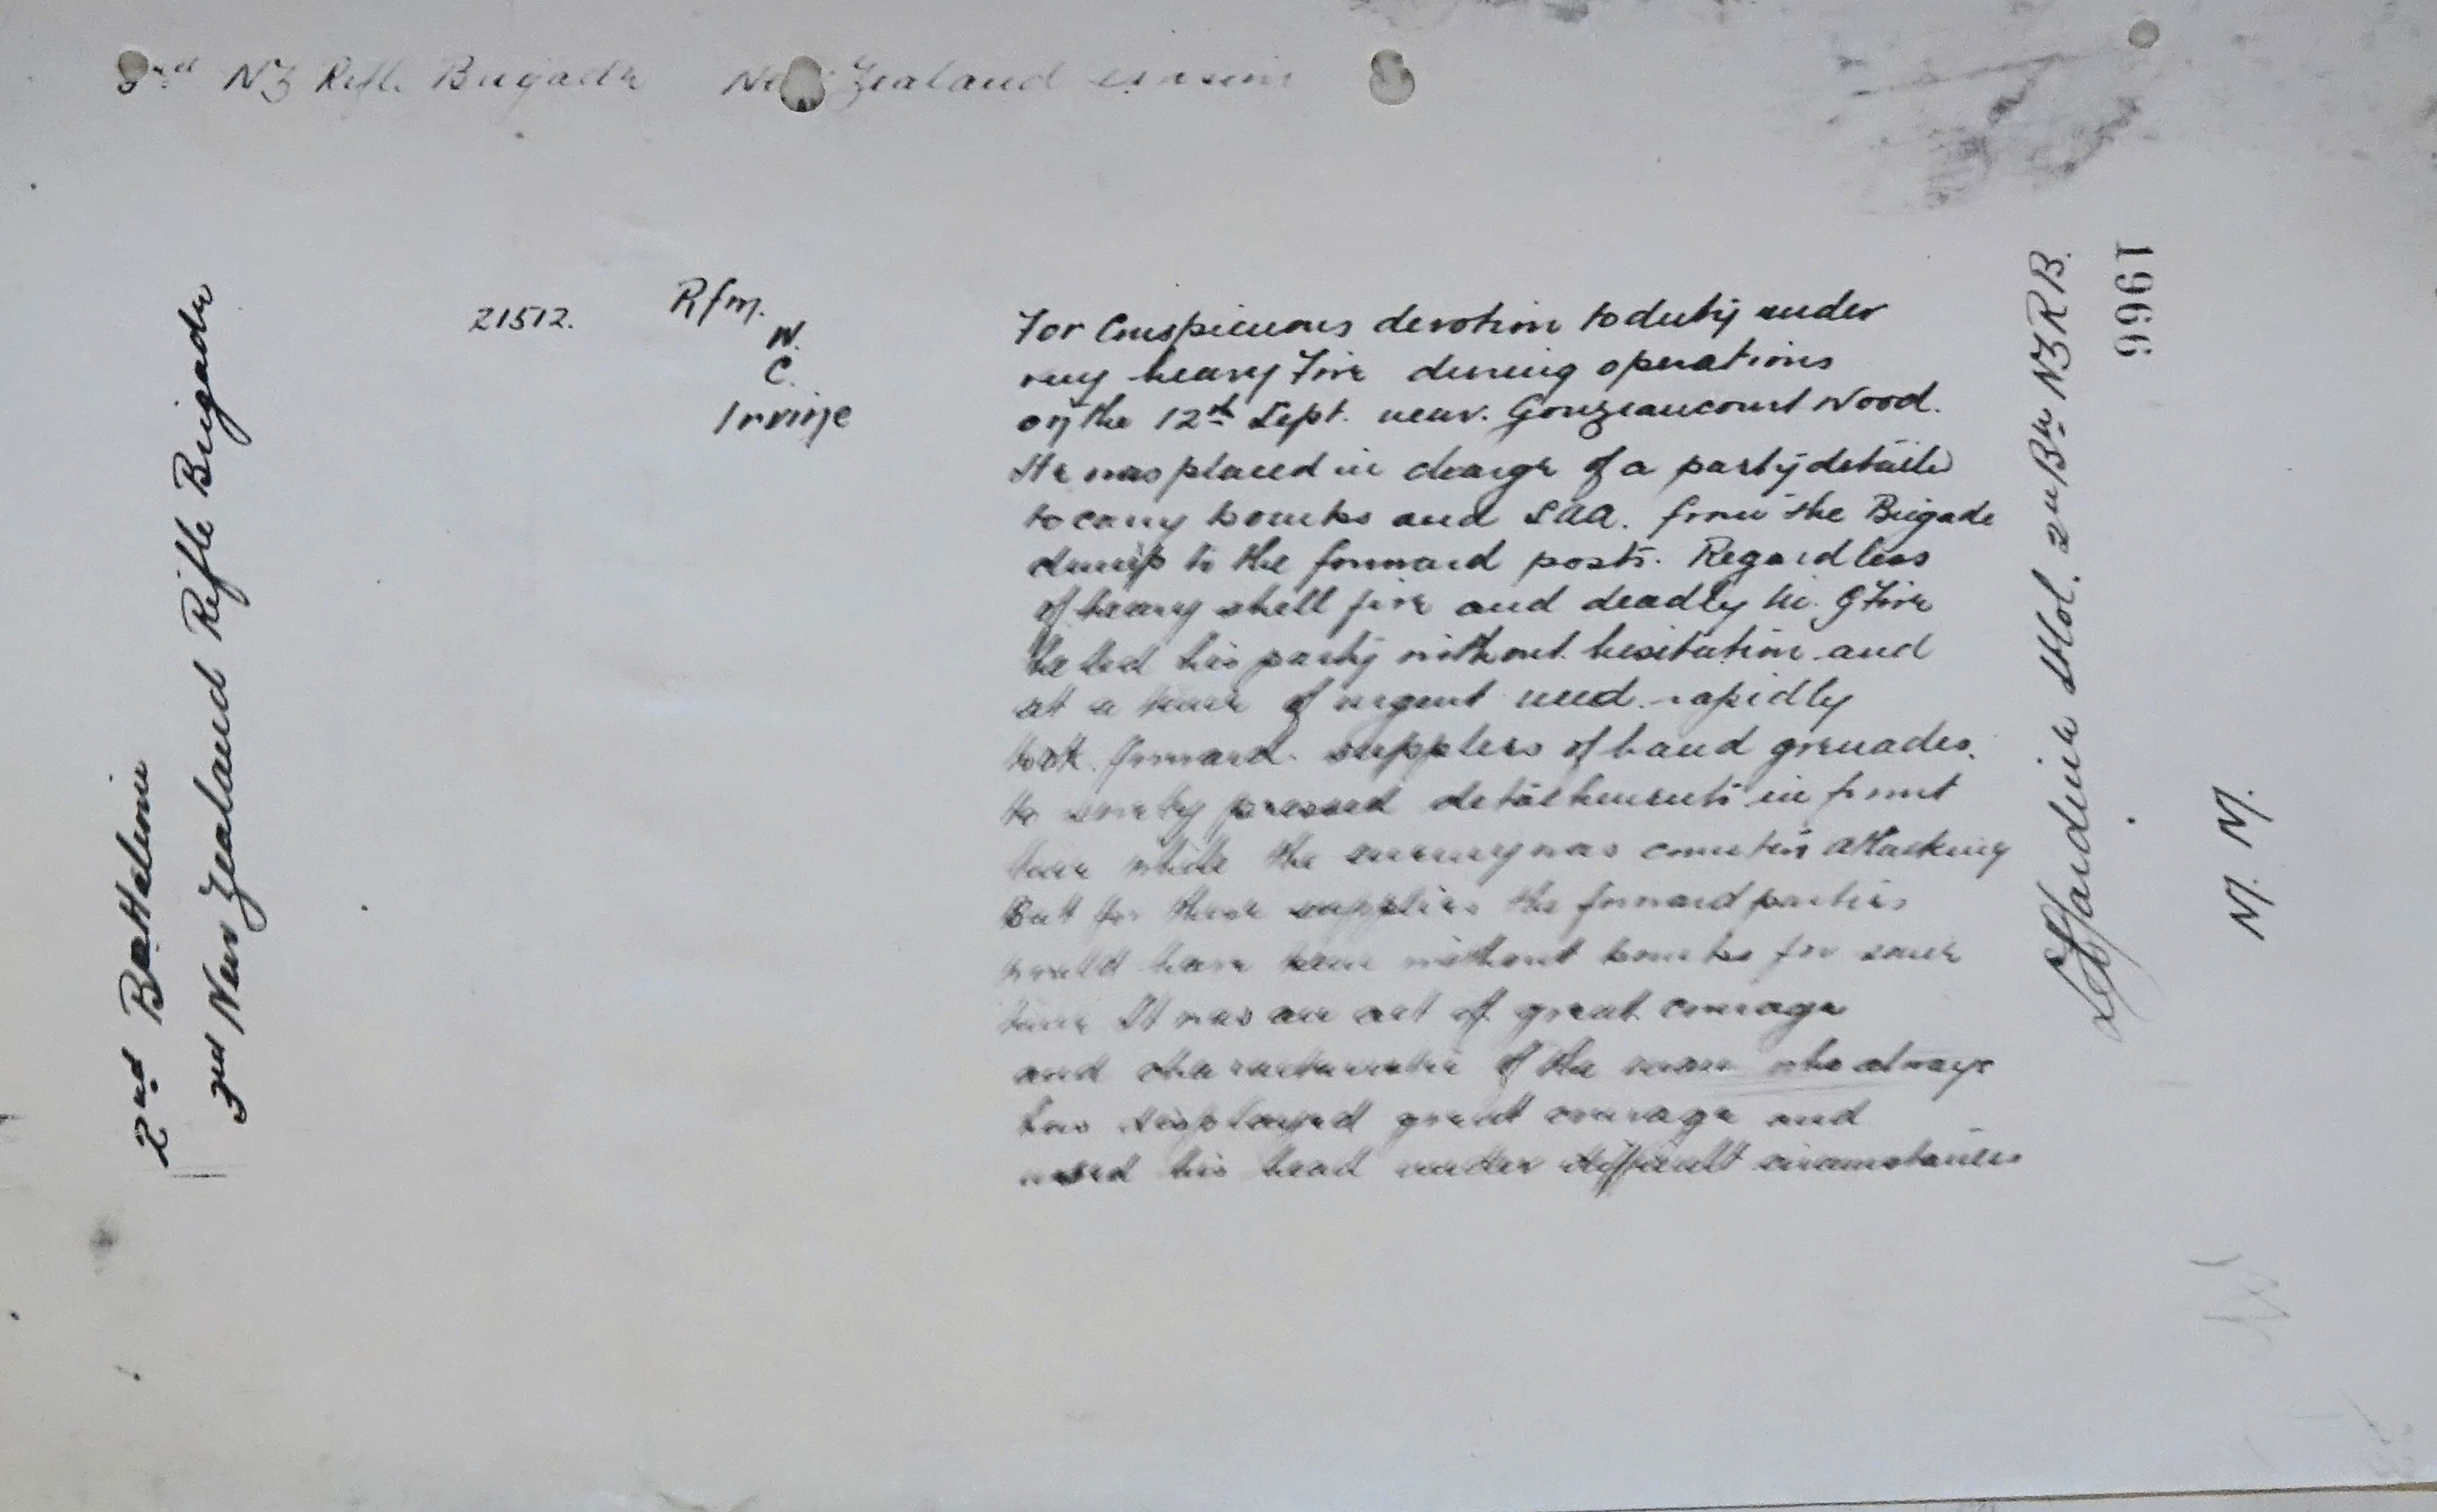 3rd NZ Rifle Brigade New Zealand
2nd Battalion
3rd New Zealand Rifle Brigade
21512.
Rfm.
W.
C.
Irvine
For Conspicuous devotion to duty under
very heavy Fire during operations
on the 12th Sept. near. Gouzeaucourt Wood.
He was placed in charge of a party detailed
to carry bombs and SAA. from the Brigade
dump to the forward posts. Regardless
of heavy shell fire and deadly M. G Fire
he led his party without hesitation and
at a time of urgent need rapidly
took forward supplies of hand grenades.
to sorely pressed detachments in front
line while the enemy was counter attacking
But for these supplies the forward parties
would have been without bombs for some
time It was an act of great courage
and characteristic of the man who always
has displayed great courage and
used his head under difficult circumstances
Jardine Lt Col. 2nd Bn NZRB.
1966
M. M.